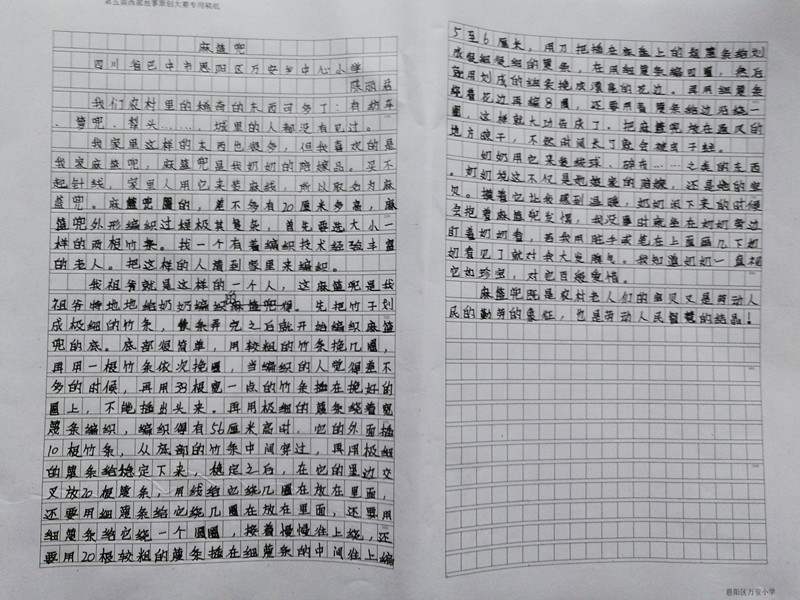 第五届西部故事原创大赛专用稿纸
麻篮兜
四川省巴中市恩阳区万安乡中心小学
陈丽君
我们农村里的稀奇的东西可多了：有纺车
、箩兜、犁头……，城里的人都没有见过。
我家里这样的东西也很多，但我喜欢的是
我家麻篮兜，麻篮兜是我奶奶的陪嫁品。买不
起针线，家里人用它来装麻线，所以取名为麻
篮兜。麻篮兜圆的，差不多有20厘米多高，麻
篮兜外形编织过程极其复杂，首先要选大小一
样的两根竹条。找一个有着编织技术经验丰富
的老人。把这样的人请到家里来编织。
我祖爷就是这样的一个人，这麻篮兜是我
祖爷特地地给奶奶编织的麻篮兜。先把竹子划
成极细的竹条，像条弄完之后就开始编织麻篮
兜的底。底部很简单，用较粗的竹条挽几圈，
再用一根竹条依次挽圈，当编织的人觉得差不
多的时候，再用38根宽一点的竹条插在挽好的
圈上，不能插出头来。再用极细的篾条绕着宽
篾条编织，编织得有56厘米高时，它的外面插
10根竹条，从底部的竹条中间穿过，再用极细
的篾条给稳定下来，稳定之后，在它的里边交
叉放20根篾条，用线给它绕几圈在放在里面，
还要用细篾条给它绕几圈在放在里面，还要用
细篾条给它绕一个圆圈，接着慢慢往上绕，还
要用20根较粗的篾条插在细篾条的中间往上编
5至6厘米，用刀把插在上的粗篾条给划
成很细很细的篾条，在用细篾条编四圈，然后
在用划成的细条挽成漂亮的花边。再用细篾条
绕着花边再编8圈，还要用着篾条给边沿绕一
圈，这样就大功告成了。把麻篮兜放在通风的
地方晾干，不然时间长了就会被虫子蛀。
奶奶用它来装线球、碎布……之类的东西
。奶奶说这不仅是她娘家的陪嫁，还是她的宝
贝。摸着它让我感到温暖，奶奶闲下来的时候
会抱着麻篮兜发愣，我没事时就坐在奶奶旁边
盯着奶奶看，若我用脏手或笔在上面画几下奶
奶看见了就对我大发脾气。我知道奶奶一直视
它如珍宝，对它百般爱惜。
麻篮兜既是农村老人们的宝贝又是劳动人
民的勤劳的象征，也是劳动人民智慧的结晶！
恩阳区万安小学